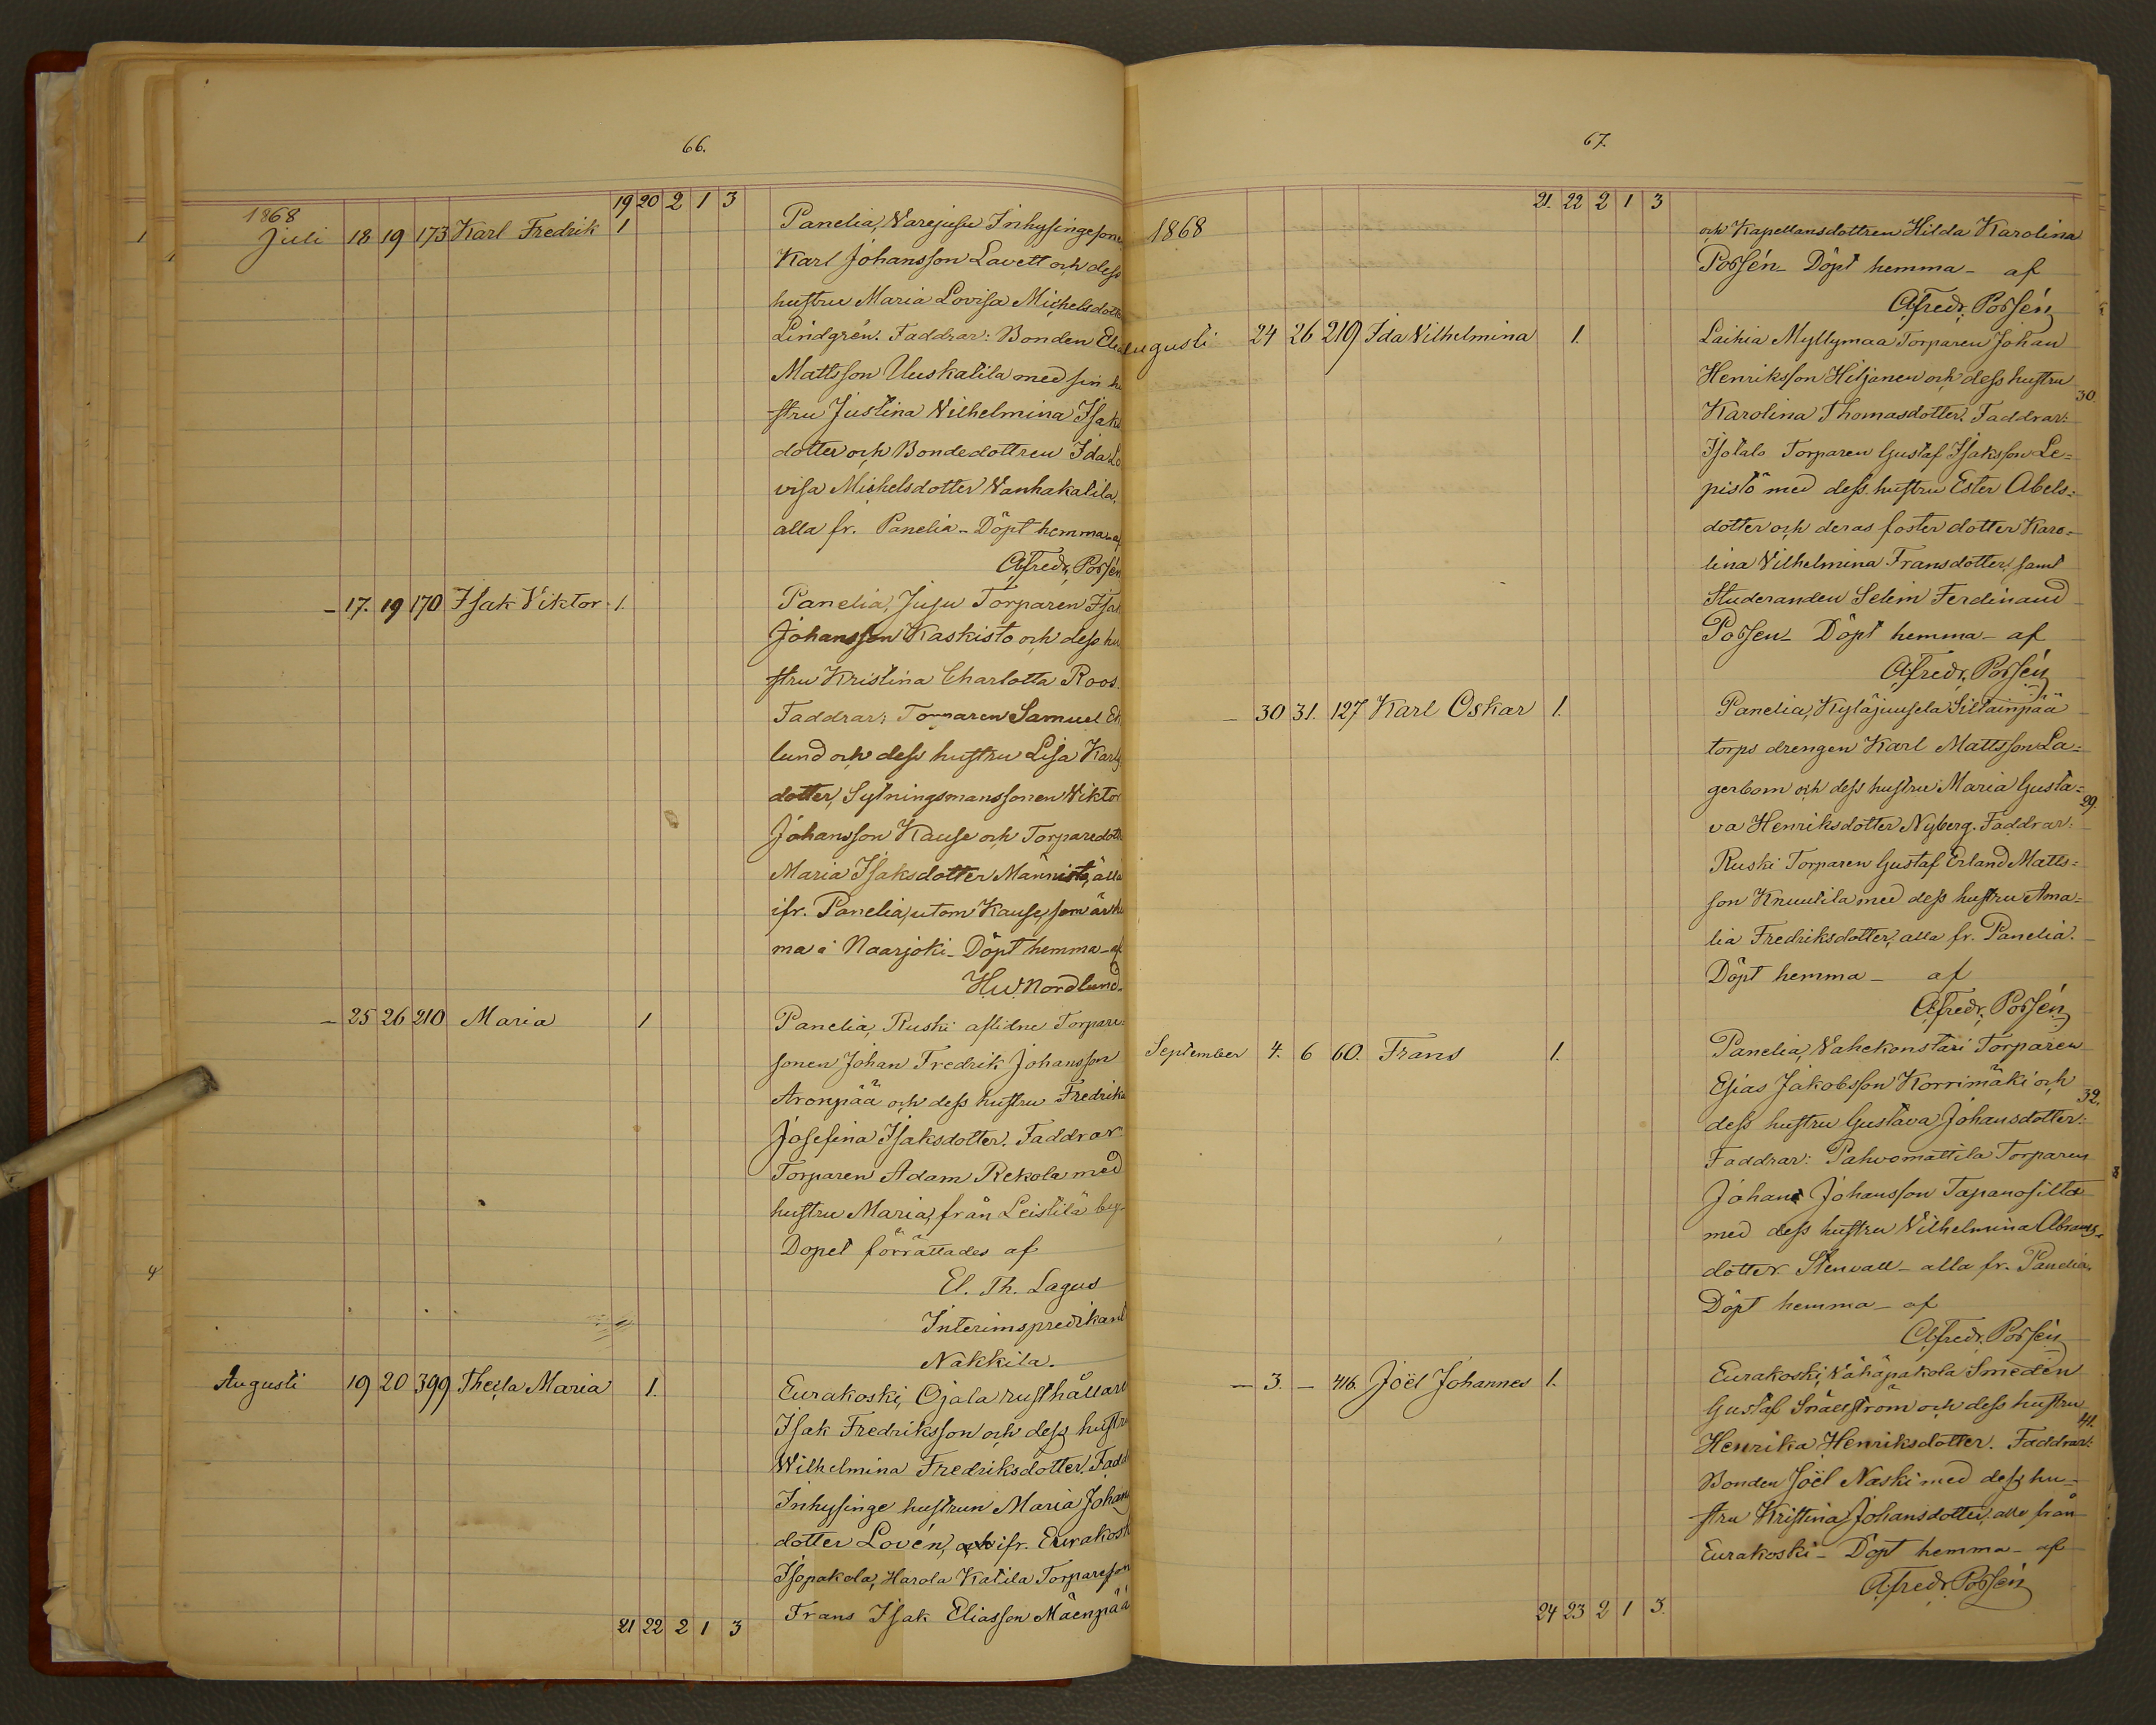 66.
19 20 2 1 3
1868
Juli 18 19 173 Karl Fredrik 1 Panelia, Varejusu Inhysingesone
Karl Johansson Lavett och dess
hustru Maria Lovisa Michelsdotte
Lindgrén. Faddrar: Bonden
Mattsson Uuskatila med sin hu
stru Justina Vilhelmina Isaks
dotter och Bondedottren Ida Lo
visa Michelsdotter Vanhakatila,
alla fr. Panelia - Döpt hemma - af
Afredr. Porsén
- 17. 19 170 Isak Viktor 1. Panelia, Jusu Torparen Isak
Johansson Kaskisto och dess hu
stru Kristina Charlotta Roos.
Faddrar: Torparen Samuel Ek
lund och dess hustru Lisa Karls
dotter, Sytningsmanssonen Viktor
Johansson Kause och Torparedott
Maria Isaksdotter Männistö, alla
ifr. Panelia, utom Kause, som är he
ma i Naarjoki - Döpt hemma - af
H.W. Nordlund.
- 25 26 210 Maria 1 Panelia, Ruski aflidne Torpare-
sonen Johan Fredrik Johansson
Aronpää och dess hustru Fredrika
Josefina Isaksdotter. Faddrar
Torparen Adam Rekola med
hustru Maria, från Leistilä by.
Dopet förrättades af
El. Th. Lagus
Interimspredikant
Nakkila.
Augusti 19 20 399 Theila Maria 1. Eurakoski, Ojala rusthållare
Isak Fredriksson och dess hustru
Wilhelmina Fredriksdotter. Fadd
Inhysinge hustrun Maria Johans
dotter Lovén, ifr. Eurakoski
Isopakola, Harola Katila Torpareson
Frans Isak Eliasson Mäenpää
21 22 2 1 3
67.
21. 22 2 1 3
1868 och Kapellansdottren Hilda Karolina
Porsén - Döpt hemma - af
Afredr. Porsén
Augusti 24 26 219 Ida Vilhelmina 1. Laihia Myllymaa Torparen Johan
Henriksson Hiljanen och dess hustru
30.
Karolina Thomasdotter. Faddrar:
Isotalo Torparen Gustaf Isaksson Le=
pistö med dess hustru Ester Abels=
dotter och deras foster dotter Karo=
lina Vilhelmina Fransdotter, samt
Studeranden Selim Ferdinand
Porsen - Döpt hemma - af
Afredr. Porsén
- 30 31. 127 Karl Oskar 1. Panelia, Kyläjuusela Siltainpää
torps drengen Karl Mattsson La=
gerbom och dess hustru Maria Gusta=
29.
va Henriksdotter Nyberg. Faddrar:
Ruski Torparen Gustaf Erland Matts=
son Knuutila med dess hustru Ama=
lia Fredriksdotter, alla fr. Panelia.
Döpt hemma - af
Afredr. Porsén
September 4. 6 60. Frans 1. Panelia, Vahekonstari Torparen
Esias Jakobsson Korrimäki och
32.
dess hustru Gustava Johansdotter.
Faddrar: Pahvomattila Torparen
Johan Johansson Tapanosilta
med dess hustru Vilhelmina Abrams-
dotter Stenvall - alla fr. Panelia.
Döpt hemma - af
Afredr. Porsén
- 3. - 416. Joël Johannes 1. Eurakoski, Vähäpakola Smeden
Gustaf Snällström och dess hustru
41.
Henrika Henriksdotter. Faddrar:
Bonden Joël Naski med dess hu-
stru Kristina Johansdotter, alla från
Eurakoski - Döpt hemma - af
Afredr. Porsén
24 23 2 1 3.